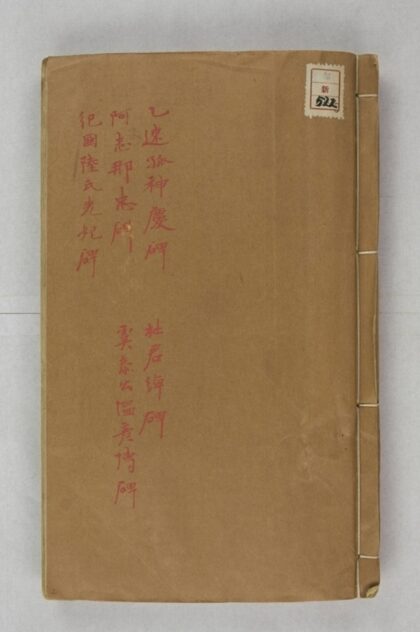 新
522
乙速孤神慶碑
阿志那忠碑
纪國陸氏先妃碑
杜君綽碑
虞恭公温彦博碑